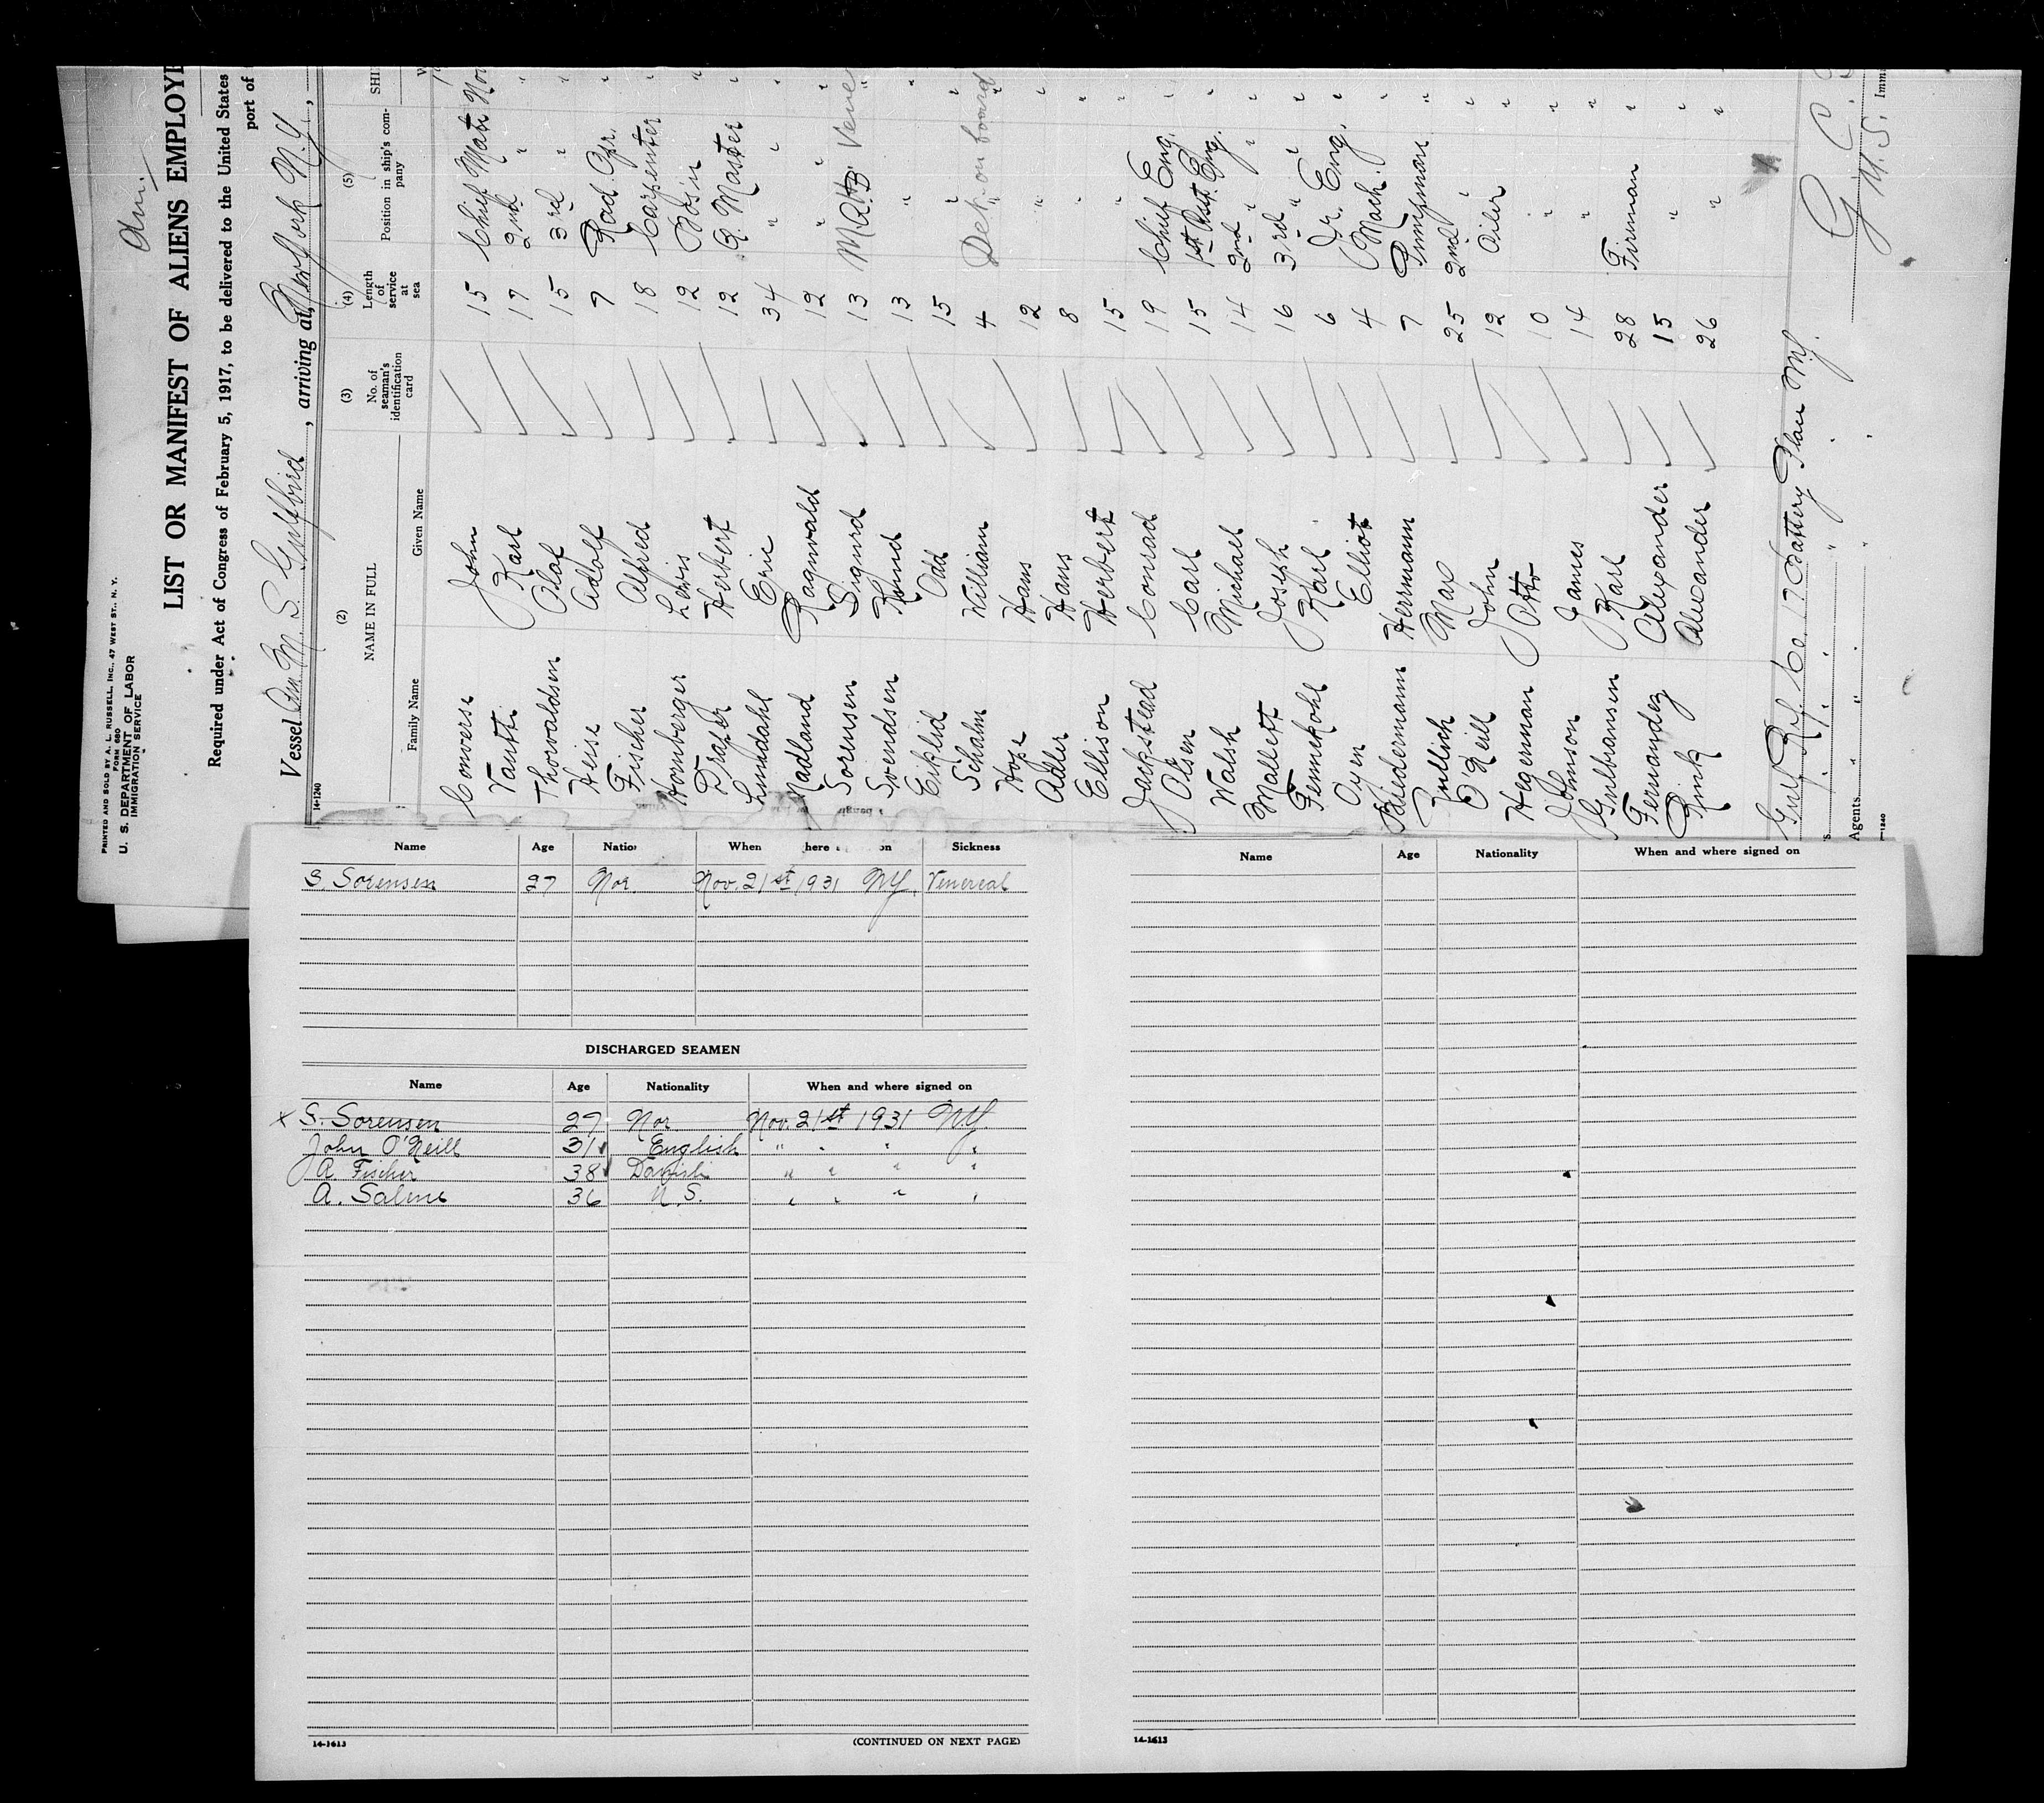 PRINTED AND SOLD BY A. L. RUSSELL, INC., 47 WEST ST., N. Y.
FORM 680
U. S. DEPARTMENT OF LABOR
IMMIGRATION SERVICE
Am.
LIST OR MANIFEST OF ALIENS EMPLOYE
Required under Act of Congress of February 5, 1917, to be delivered to the United States
port of
Vessel Am. M. S. Gulfbird, arriving at New York N.Y.,
14-1240
(2) (3) (4) (5)
NAME IN FULL No. of seaman's identification card Length of service at sea Position in ship's company SHI
Family Name Given Name W
Converse John 15 Chief Mate
Karl 17 2nd "
Thorwaldsen Olaf 15 3rd "
Heise Adolf 7 Rad. Opr. "
Fischer Alfred 18 Carpenter "
Hornberger Lewis 12 Bos'n "
Draper Herbert 12 Q. Master "
Lundahl Eric 34 " "
Madland Ragnwald 12 " "
Sorensen Sigurd 13 " Vene
Svendsen Knud 13 " "
Eiklid Odd 15 " "
Scholm William 4 Det. on board
Hope Hans 12 " "
Adler Hans 8 " "
Ellison Herbert 15 " "
Jackstead Conrad 19 Chief Eng. "
Olsen Carl 15 1st Asst. Eng. "
Walsh Michael 14 2nd " "
Mallett Joseph 16 3rd " "
Fennekohl Karl 6 Jr. Eng. "
Oyen Elliot 4 Mach. "
Biedermann Herrmann 7 Pumpman "
Zullich Max 25 2nd " "
O'Neill John 12 Oiler "
Hegeman Otto 10 " "
Johnson James 14 " "
Gulbransen Karl 28 Firman "
Fernandez Alexander 15 " "
Rink Alexander 26 " "
Gulf Ref. Co. 17 Battery Place N.Y.
Agents " " " "
U. S. Immi
—1240
Name Age Natio When here on Sickness
S. Sorensen 27 Nor. Nov. 21st 1931 NY. Venereal
DISCHARGED SEAMEN
Name Age Nationality When and where signed on
x S. Sorensen 27 Nor Nov. 21st 1931 NY.
John O'Neill 31 English " " " "
A. Fischer 38 Danish " " " "
A. Salme 36 U. S. " " " "
14-1613 (CONTINUED ON NEXT PAGE)
Name Age Nationality When and where signed on
14-1613